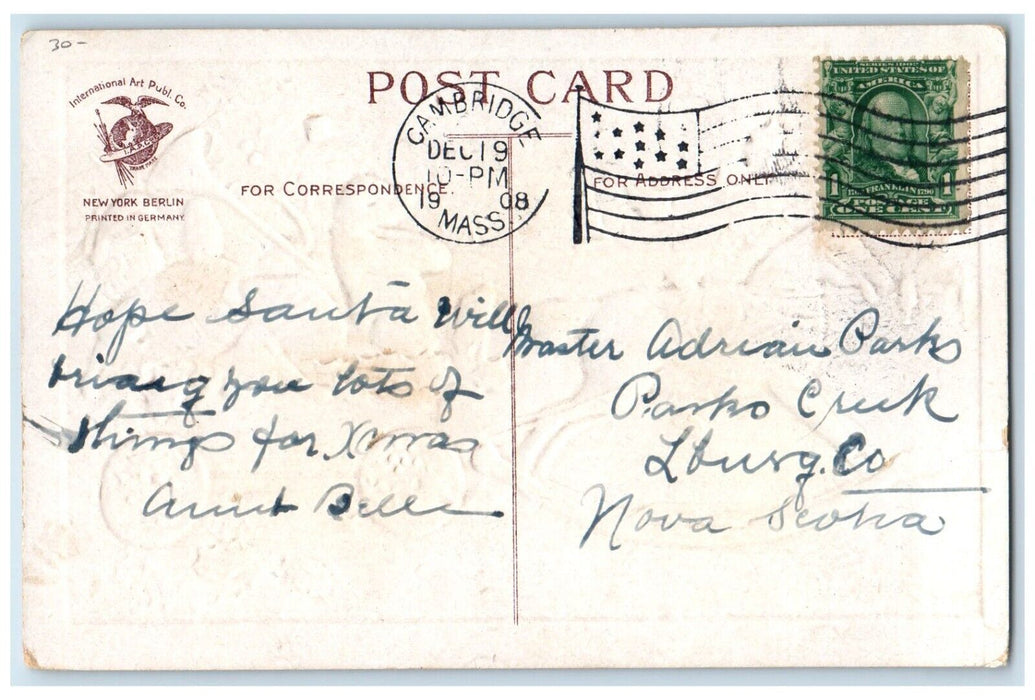 30-
International Art Publ. Co.
NEW YORK BERLIN
PRINTED IN GERMANY.
POST CARD
FOR CORRESPONDENCE.
FOR ADDRESS ONLY
CAMBRIDGE
DEC 19
10-PM
19 08
MASS.
SERIES 1902
UNITED STATES OF
AMERICA
1 FRANKLIN 1
POSTAGE
ONE CENT
Hope Santa will
bring you lots of
things for Xmas
Aunt Belle
Master Adrian Parks
Parks Creek
Lburg. Co
Nova Scotia